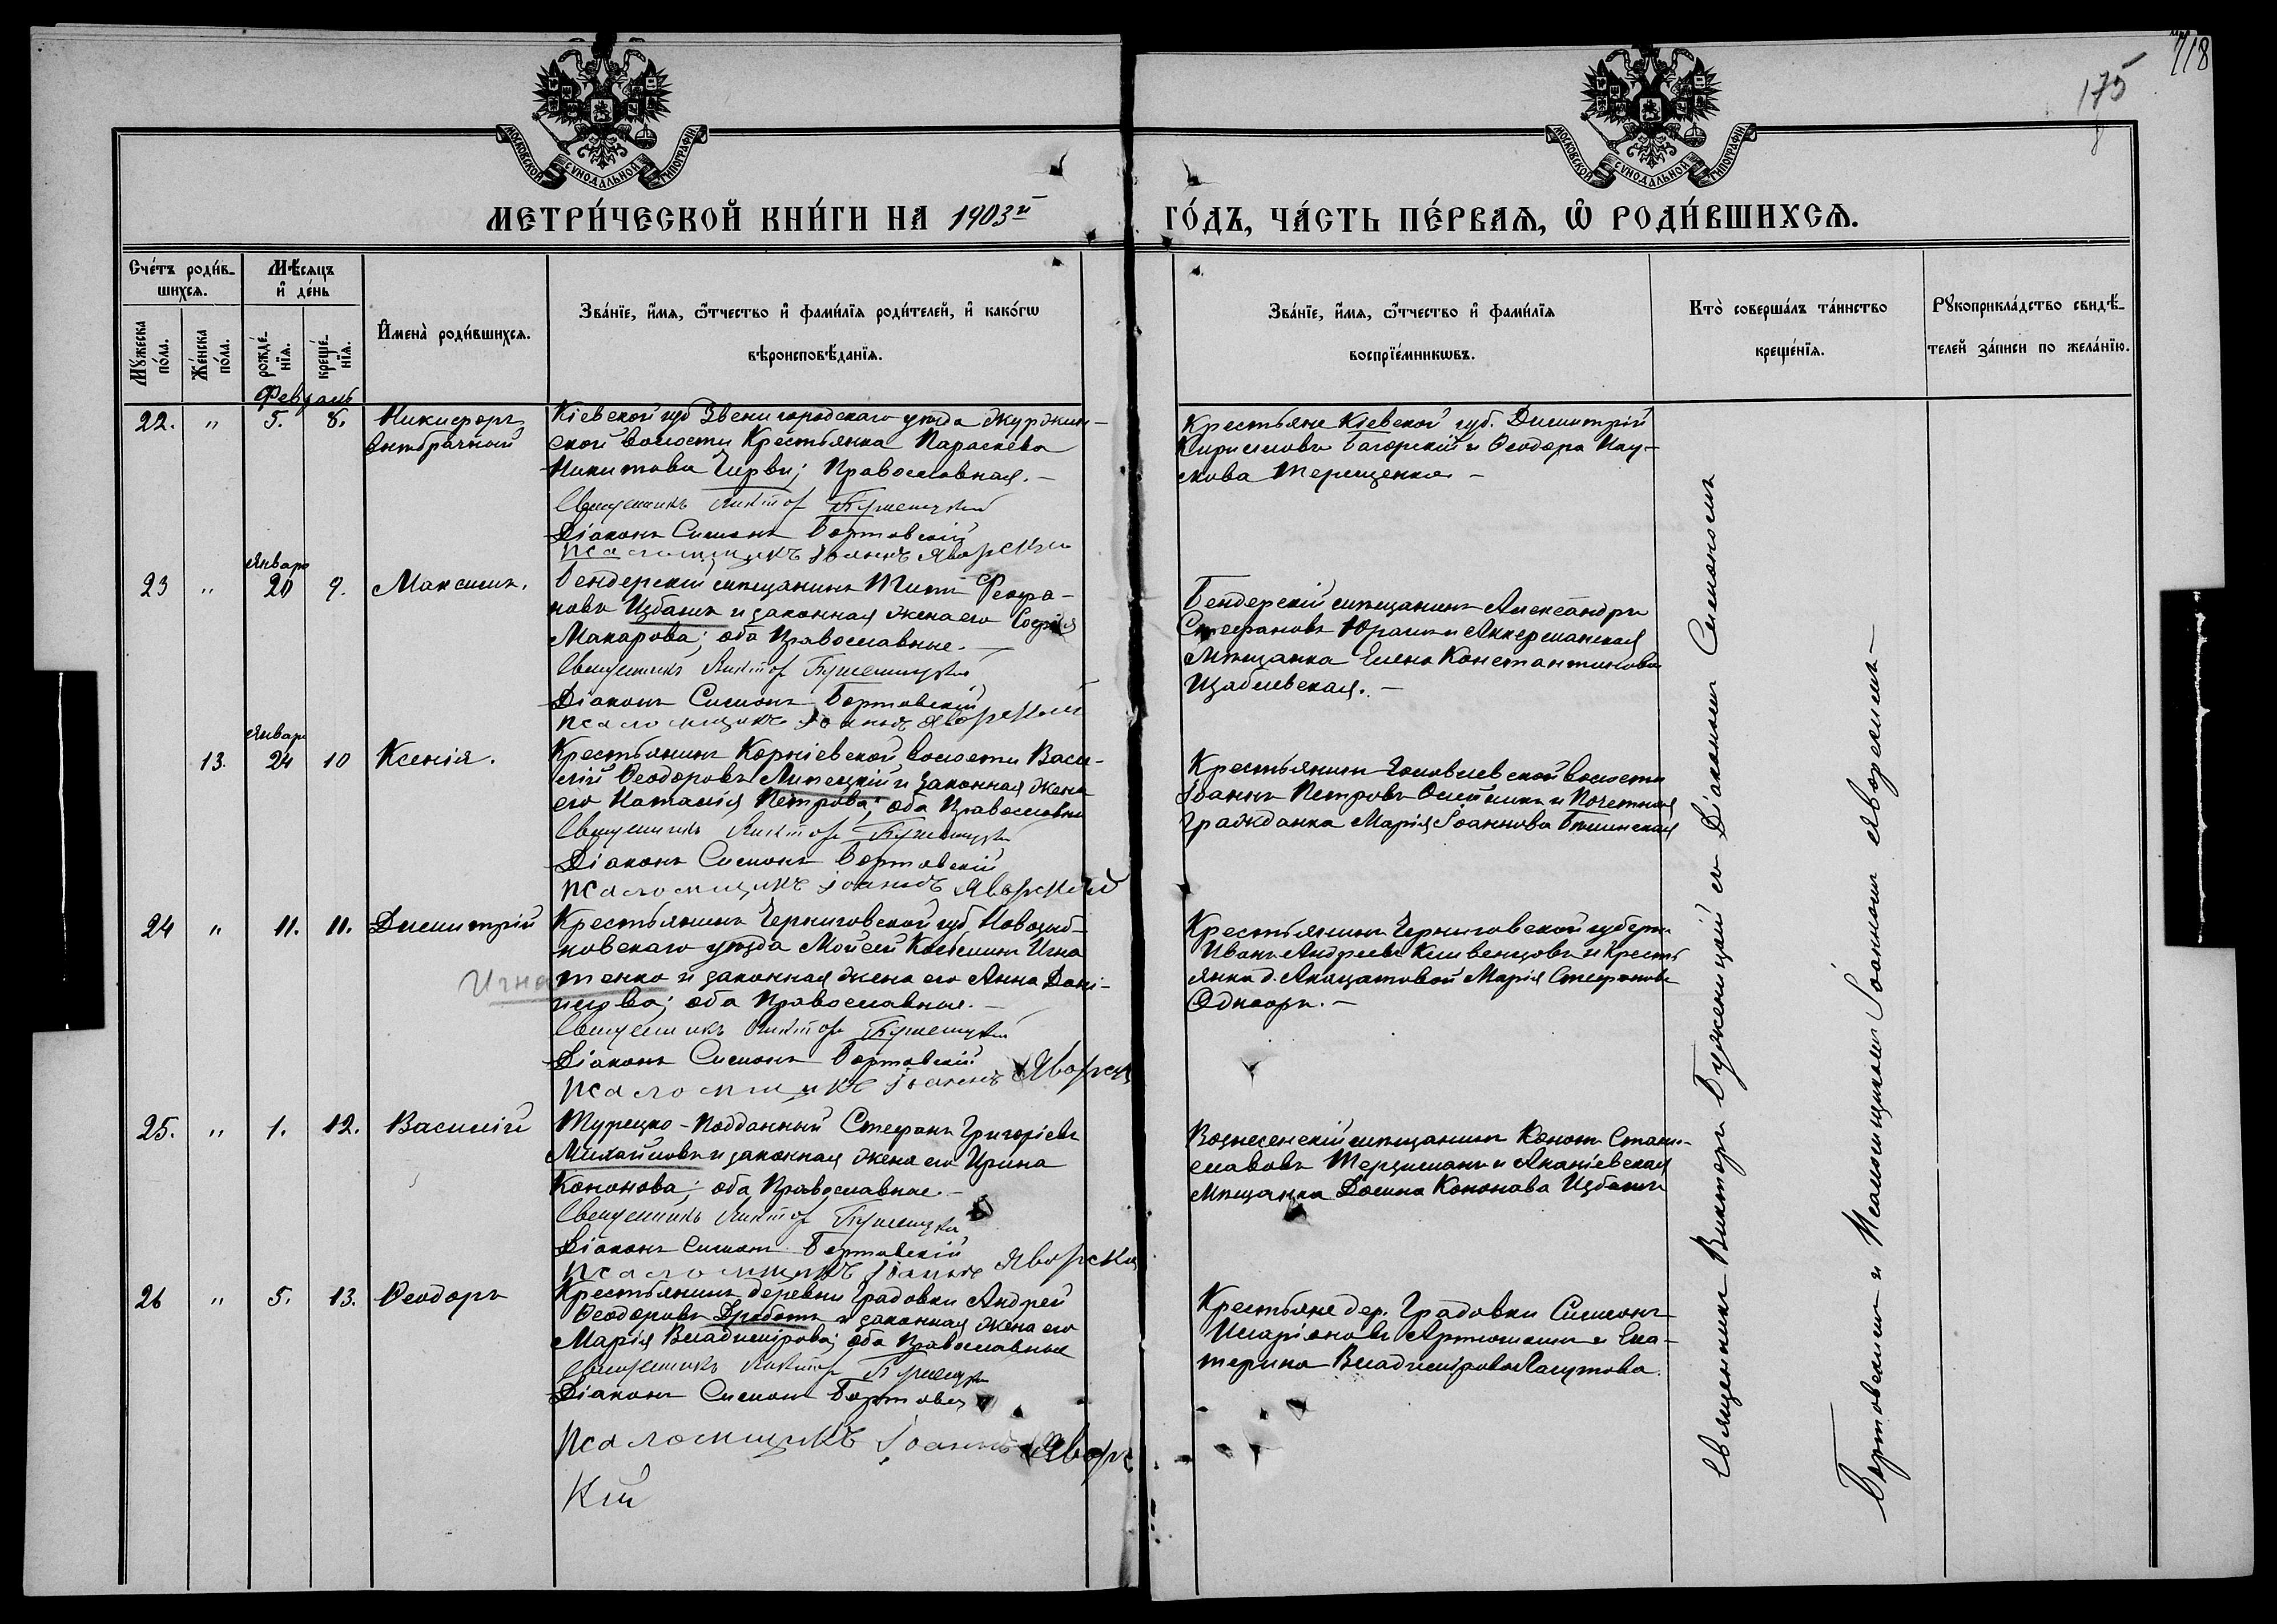 718
175
МОСКОВСКОЙ СУНОДАЛЬНОЙ ТИПОГРАФІИ
МОСКОВСКОЙ СУНОДАЛЬНОЙ ТИПОГРАФІИ
МЕТРИ́ЧЕСКОЙ КНИ́ГИ НА 1903й
ГО́ДЪ, ЧА́СТЬ ПЕ́РВАѦ, Ѡ РОДИ́ВШИХСѦ.
Сче́тъ роди́в-
шихсѧ.
Мꙋ́жеска
по́ла.
Же́нска
по́ла.
Мѣ́сѧцъ
и҆ де́нь
рожде́-
нїѧ.
креще́-
нїѧ.
И҆мена̀ роди́вшихсѧ.
Зва́нїе, и҆́мѧ, ѻ҆́тчество и҆ фами́лїѧ роди́телей, и҆ како́гѡ
вѣроисповѣ́данїѧ.
Зва́нїе, и҆́мѧ, ѻ҆́тчество и҆ фами́лїѧ
воспрїе́мникѡвъ.
Кто̀ соверша́лъ та́инство
креще́нїѧ.
Рꙋкоприкла́дство свидѣ́-
телей за́писи по жела́нїю.
Февраль
22. " 5. 8. Никифоръ
внѣбрачный
Кіевской губ Звенигородскаго уѣзда Журжин-
ской волости Крестьянка Параскева
Никитова Черви; Православная. —
Священникъ Виктор Бужемицкій
Діаконъ Симеонъ Бортовскій
псаломщикъ Іоаннъ Яворскій
Крестьяне Кіевской губ. Димитрій
Кирилловъ Багорскій и Ѳеодора Нау-
мова Терещенко —
Января
23 " 20 9. Максимъ.
Бендерскій мѣщанинъ Титъ Феофа-
новъ Избашъ и законная жена его Софія
Макарова; оба Православные. —
Священникъ Виктор Бужемицкій
Діаконъ Симеонъ Бортовскій
псаломщикъ Іоаннъ Яворскій
Бендерскій мѣщанинъ Александръ
Стефановъ Юрашъ и Аккерманская
Мѣщанка Елена Константинова
Щабелевская. —
Января
13. 24 10 Ксенія.
Крестьянинъ Корніевской волости Васи-
лій Ѳеодоровъ Липецкій и законная жена
его Наталія Петрова; оба Православны
Священникъ Виктор Бужемицкій
Діаконъ Симеонъ Бортовскій
псаломщикъ Іоаннъ Яворскій
Крестьянинъ Головлевской волости
Іоаннъ Петровъ Олейникъ и Почетная
Гражданка Марія Іоаннова
24 " 11. 11. Димитрій
Крестьянинъ Черниговской губ, Новозыб-
ковскаго уѣзда Мойсей Косминъ Игна
Игна
тенко и законная жена его Анна Дані-
илова; оба Православные. —
Священникъ Виктор Бужемицкій
Діаконъ Симеонъ Бортовскій
псаломщикъ Іоаннъ Яворск
Крестьянинъ Черниговской губерн
Иванъ Андреевъ Климвенцовъ и Кресть
янка д. Акацатовой Марія Стефанова
Одноорк. —
25. " 1. 12. Василій
Турецко-Подданный Стефанъ Григорьевъ
Михайловъ и законная жена его Ирина
Кононова; оба Православные. —
Священникъ Виктор Бужемицки
Діаконъ Симеонъ Бортовскій
псаломщикъ Іоаннъ Яворски
Вознесенскій мѣщанинъ Кононъ Стани-
славовъ Терзиманъ и Ананіевская
Мѣщанка Домна Кононова Избашъ
26 " 5. 13. Ѳеодоръ
Крестьянинъ деревни Градовки Андрей
Ѳеодоровъ Дработъ и законная жена его
Марія Владимірова; оба Православные
Священникъ Виктор Бужемицки
Діаконъ Симеонъ Бортовск
псаломщикъ Іоаннъ Яворс
кій
Крестьяне дер. Градовки Симеонъ
Иларіоновъ Артюшинъ и Ека-
терина Владимірова Лагутова.
Священникъ Викторъ Бужемицкій съ Діакономъ Симеономъ
Бортовскимъ и Псаломщикомъ Іоанномъ Яворскимъ —